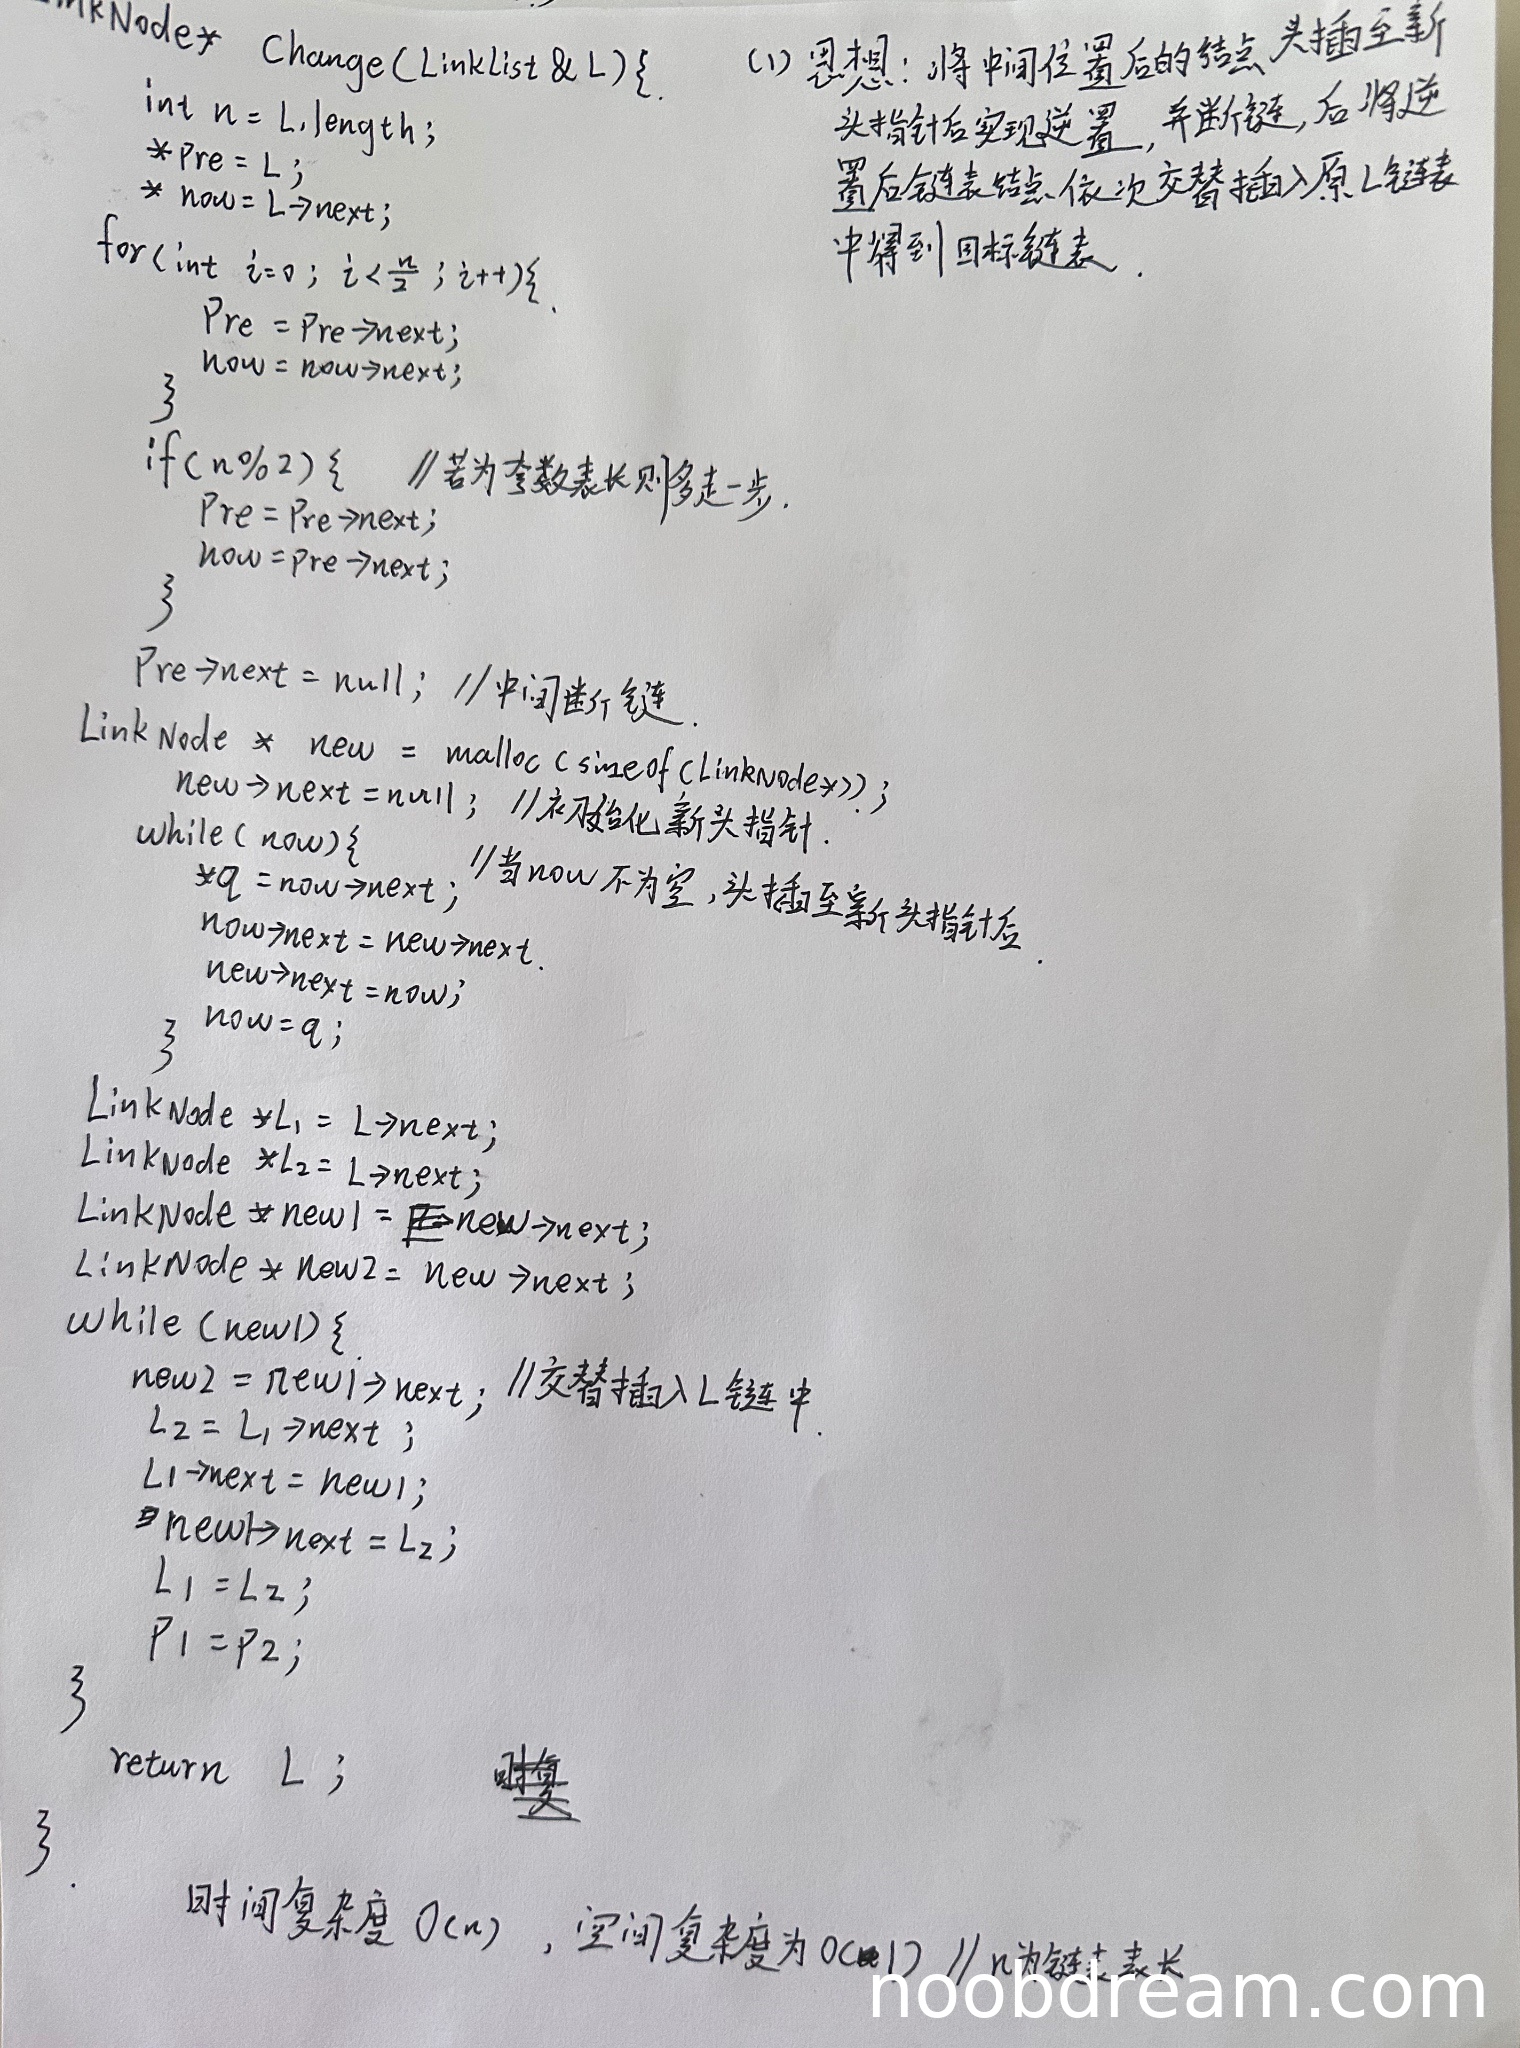 LinkNode* Change(LinkList & L){
int n = L.length;
*Pre = L;
* now = L->next;
for(int i=0; i<n/2; i++){
Pre = Pre->next;
now = now->next;
}
if(n%2){ //若为奇数表长则多走一步.
Pre = Pre->next;
now = Pre->next;
}
Pre->next = null; //中间断链.
LinkNode * new = malloc(sizeof(LinkNode*));
new->next = null; //初始化新头指针.
while(now){
*q = now->next; //当now不为空,头插至新头指针后.
now->next = new->next.
new->next = now;
now = q;
}
LinkNode *L1 = L->next;
LinkNode *L2 = L->next;
LinkNode *new1 = new->next;
LinkNode *new2 = new->next;
while(new1){
new2 = new1->next; //交替插入L链中.
L2 = L1->next;
L1->next = new1;
new1->next = L2;
L1 = L2;
P1 = P2;
}
return L;
}
时间复杂度O(n),空间复杂度为O(1) //n为链表表长
(1)思想:将中间位置后的结点头插至新
头指针后实现逆置,并断链,后将逆
置后链表结点依次交替插入原L链表
中得到目标链表.
noobdream.com